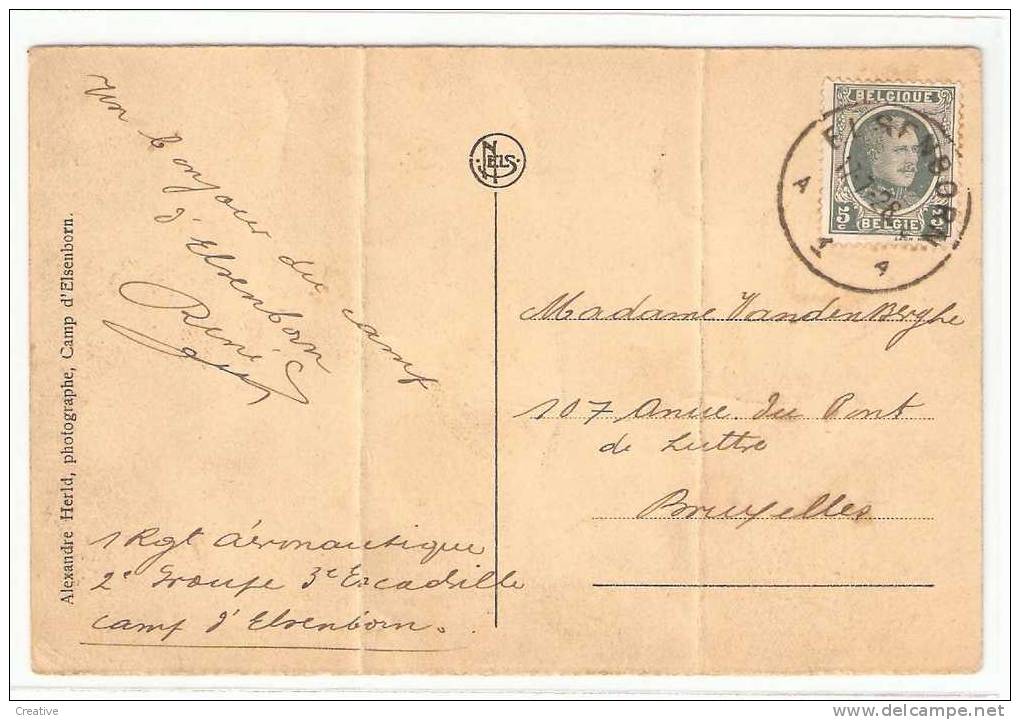 Un bonjour du camp
d'Elsenborn
René
1 Rgt Aéronautique
2e Groupe 3e Escadrille
Camp d'Elsenborn.
Alexandre Herld, photographe, Camp d'Elsenborn.
NELS
BELGIQUE
5c 5c
BELGIE
ELSENBORN
-7-28
A A
Madame VandenBerghe
107 Anue du Pont
de Luttre
Bruxelles
Creative
www.delcampe.net